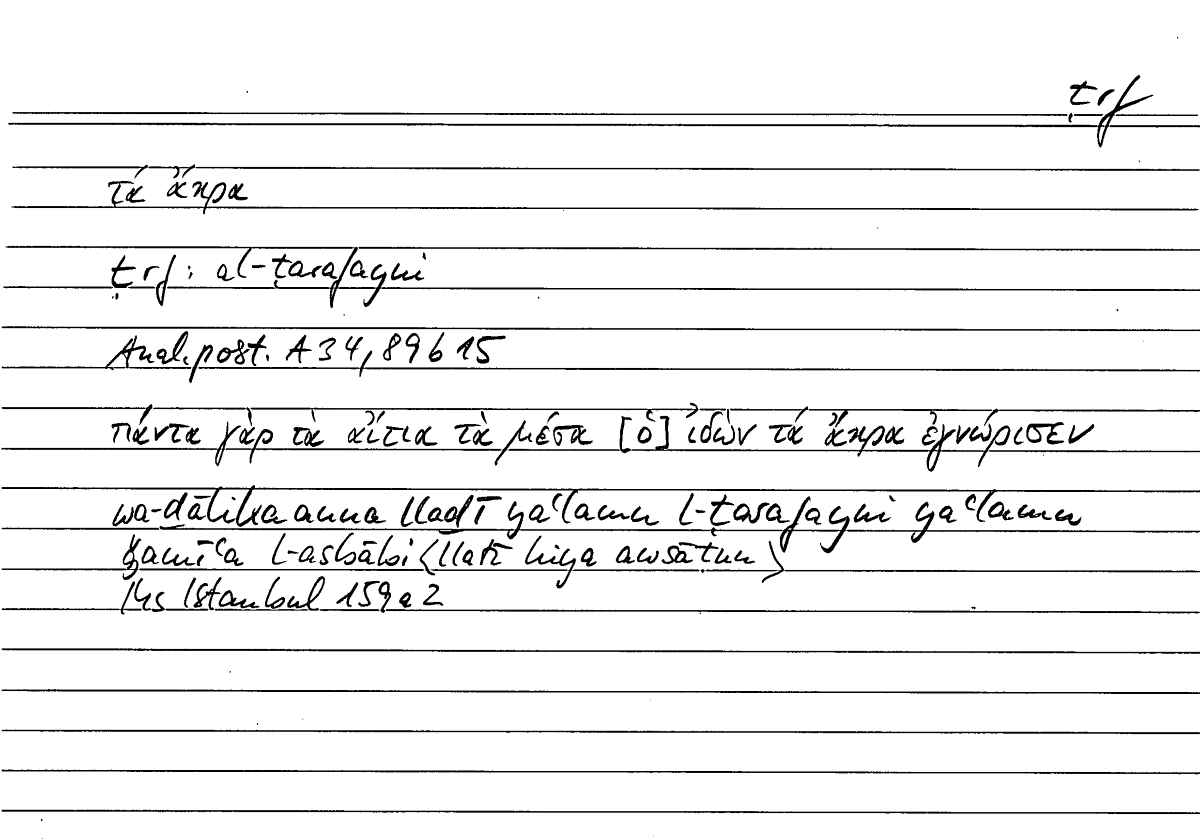 ṭrf
τά ἄκρα
ṭrf: al-ṭarafayni
Anal. post. A 34, 89 b 15
πάντα γὰρ τὰ αἴτια τὰ μέσα [ὁ] ἰδὼν τά ἄκρα ἐγνώρισεν
wa-ḏālika anna llaḏī yaʿlamu l-ṭarafayni yaʿlamu
ǧamīʿa l-asbābi ⟨llatī hiya awsāṭun⟩
Hs Istanbul 159 a 2